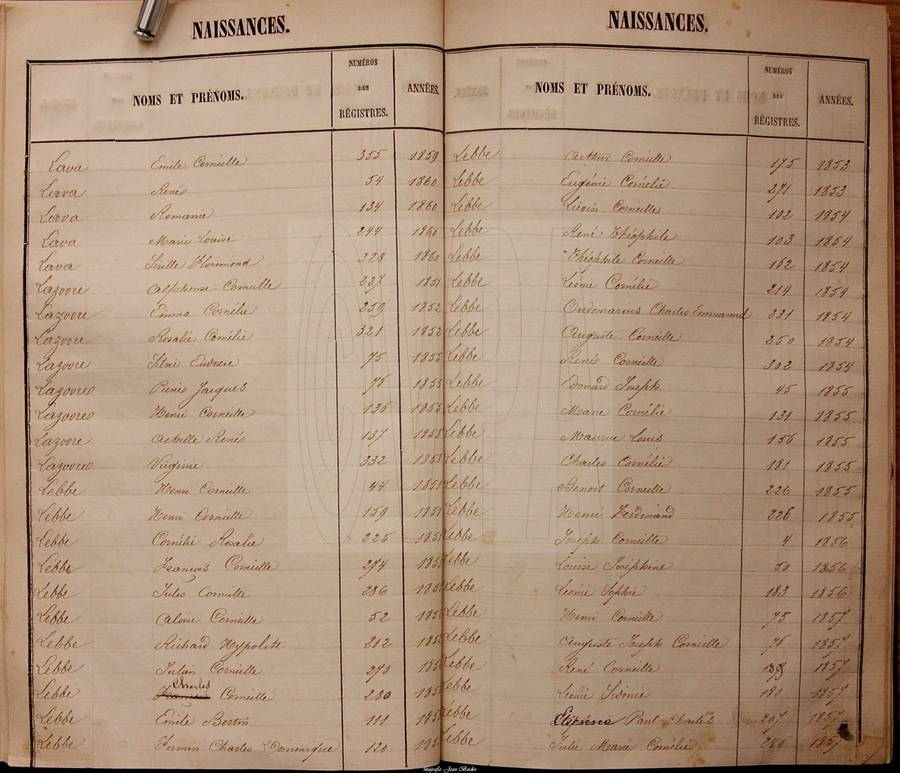 NAISSANCES.
NOMS ET PRÉNOMS. NUMÉROS DES RÉGISTRES. ANNÉES.
Lava Emile Corneille 355 1859
Lava René 54 1860
Lava Romanie 134 1860
Lava Marie Louise 244 1860
Lava 328 1860
Lazoore Alphonse Corneille 237 1851
Lazoore Emma Cornélie 259 1852
Lazoore Rosalie Cornélie 321 1852
Lazoore 75 1855
Lazoore Jacques 76 1855
Lazoore Henri Corneille 135 1855
Lazoore Achille René 137 1855
Lazoore Virginie 332
Lebbe Henri Corneille 44
Lebbe Henri Corneille 159
Lebbe Cornélie Rosalie 225
Lebbe François Corneille 274
Lebbe Jules Corneille 286
Lebbe Aloïse Corneille 52
Lebbe Richard Hyppolite 212
Lebbe Julien Corneille 270
Lebbe Charles Corneille 280
Lebbe Emile Bertin 111
Lebbe Firmin Charles Dominique 120
NAISSANCES.
NOMS ET PRÉNOMS. NUMÉROS DES RÉGISTRES. ANNÉES.
Lebbe Arthur Corneille 175 1853
Lebbe Eugénie Cornélie 271 1853
Lebbe Liévin Corneille 102 1854
Lebbe René Théophile 103 1854
Lebbe Théophile Corneille 162 1854
Lebbe Léonie Cornélie 214 1854
Lebbe Charles Emmanuel 231 1854
Lebbe Auguste Corneille 250 1854
Lebbe René Corneille 302 1854
Lebbe Edouard Joseph 45 1855
Lebbe Marie Cornélie 131 1855
Lebbe Maurice Louis 156 1855
Lebbe Charles Cornélie 181 1855
Lebbe Benoit Corneille 226 1855
Lebbe Henri Ferdinand 228 1855
Lebbe Joseph Corneille 4 1856
Lebbe Louise Joséphine 50 1856
Lebbe Léonie Sophie 183 1856
Lebbe Henri Corneille 75 1857
Lebbe Auguste Joseph Corneille 76 1857
Lebbe René Corneille 1857
Lebbe Léonie Sidonie 180 1857
Lebbe Paul Charles 207 1857
Lebbe Julie Marie Cornélie 286 1857